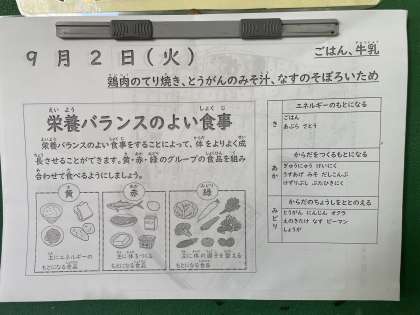 9月2日(火)
ごはん、牛乳
鶏肉のてり焼き、とうがんのみそ汁、なすのそぼろいため
えいよう しょくじ
栄養バランスのよい食事
栄養バランスのよい食事をすることによって、体をよりよく成
長させることができます。黄・赤・緑のグループの食品を組み
合わせて食べるようにしましょう。
黄
主にエネルギーの
もとになる食品
赤
主に体をつくる
もとになる食品
みどり
緑
主に体の調子を整える
もとになる食品
き
エネルギーのもとになる
ごはん
あぶら さとう
あか
からだをつくるもとになる
ぎゅうにゅう けいにく
うすあげ みそ だしこんぶ
けずりぶし ぶたひきにく
みどり
からだのちょうしをととのえる
とうがん にんじん オクラ
えのきたけ なす ピーマン
しょうが